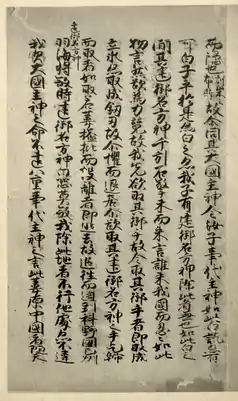 故尒問其大國主神今汝子事代主神如此白訖亦有
可白子乎於是亦白之亦我子有建御名方神除此者無也如此白之
間其建御名方神千引石擎手末而来言誰来我國而忍々如此
物言然欲為力競故我先欲取其御手故令取其御手者即取成
立氷亦取成釼刃故尒懼而退居尒欲取其建御名方神之手乞歸
而取者如取若葦搤批而投離者即逃去故追往而迫到科野國之州
羽海将殺時建御名方神白恐莫殺我除此地者不行他處亦不違
我父大國主神之命不違八重事代主神之言此葦原中國者随天